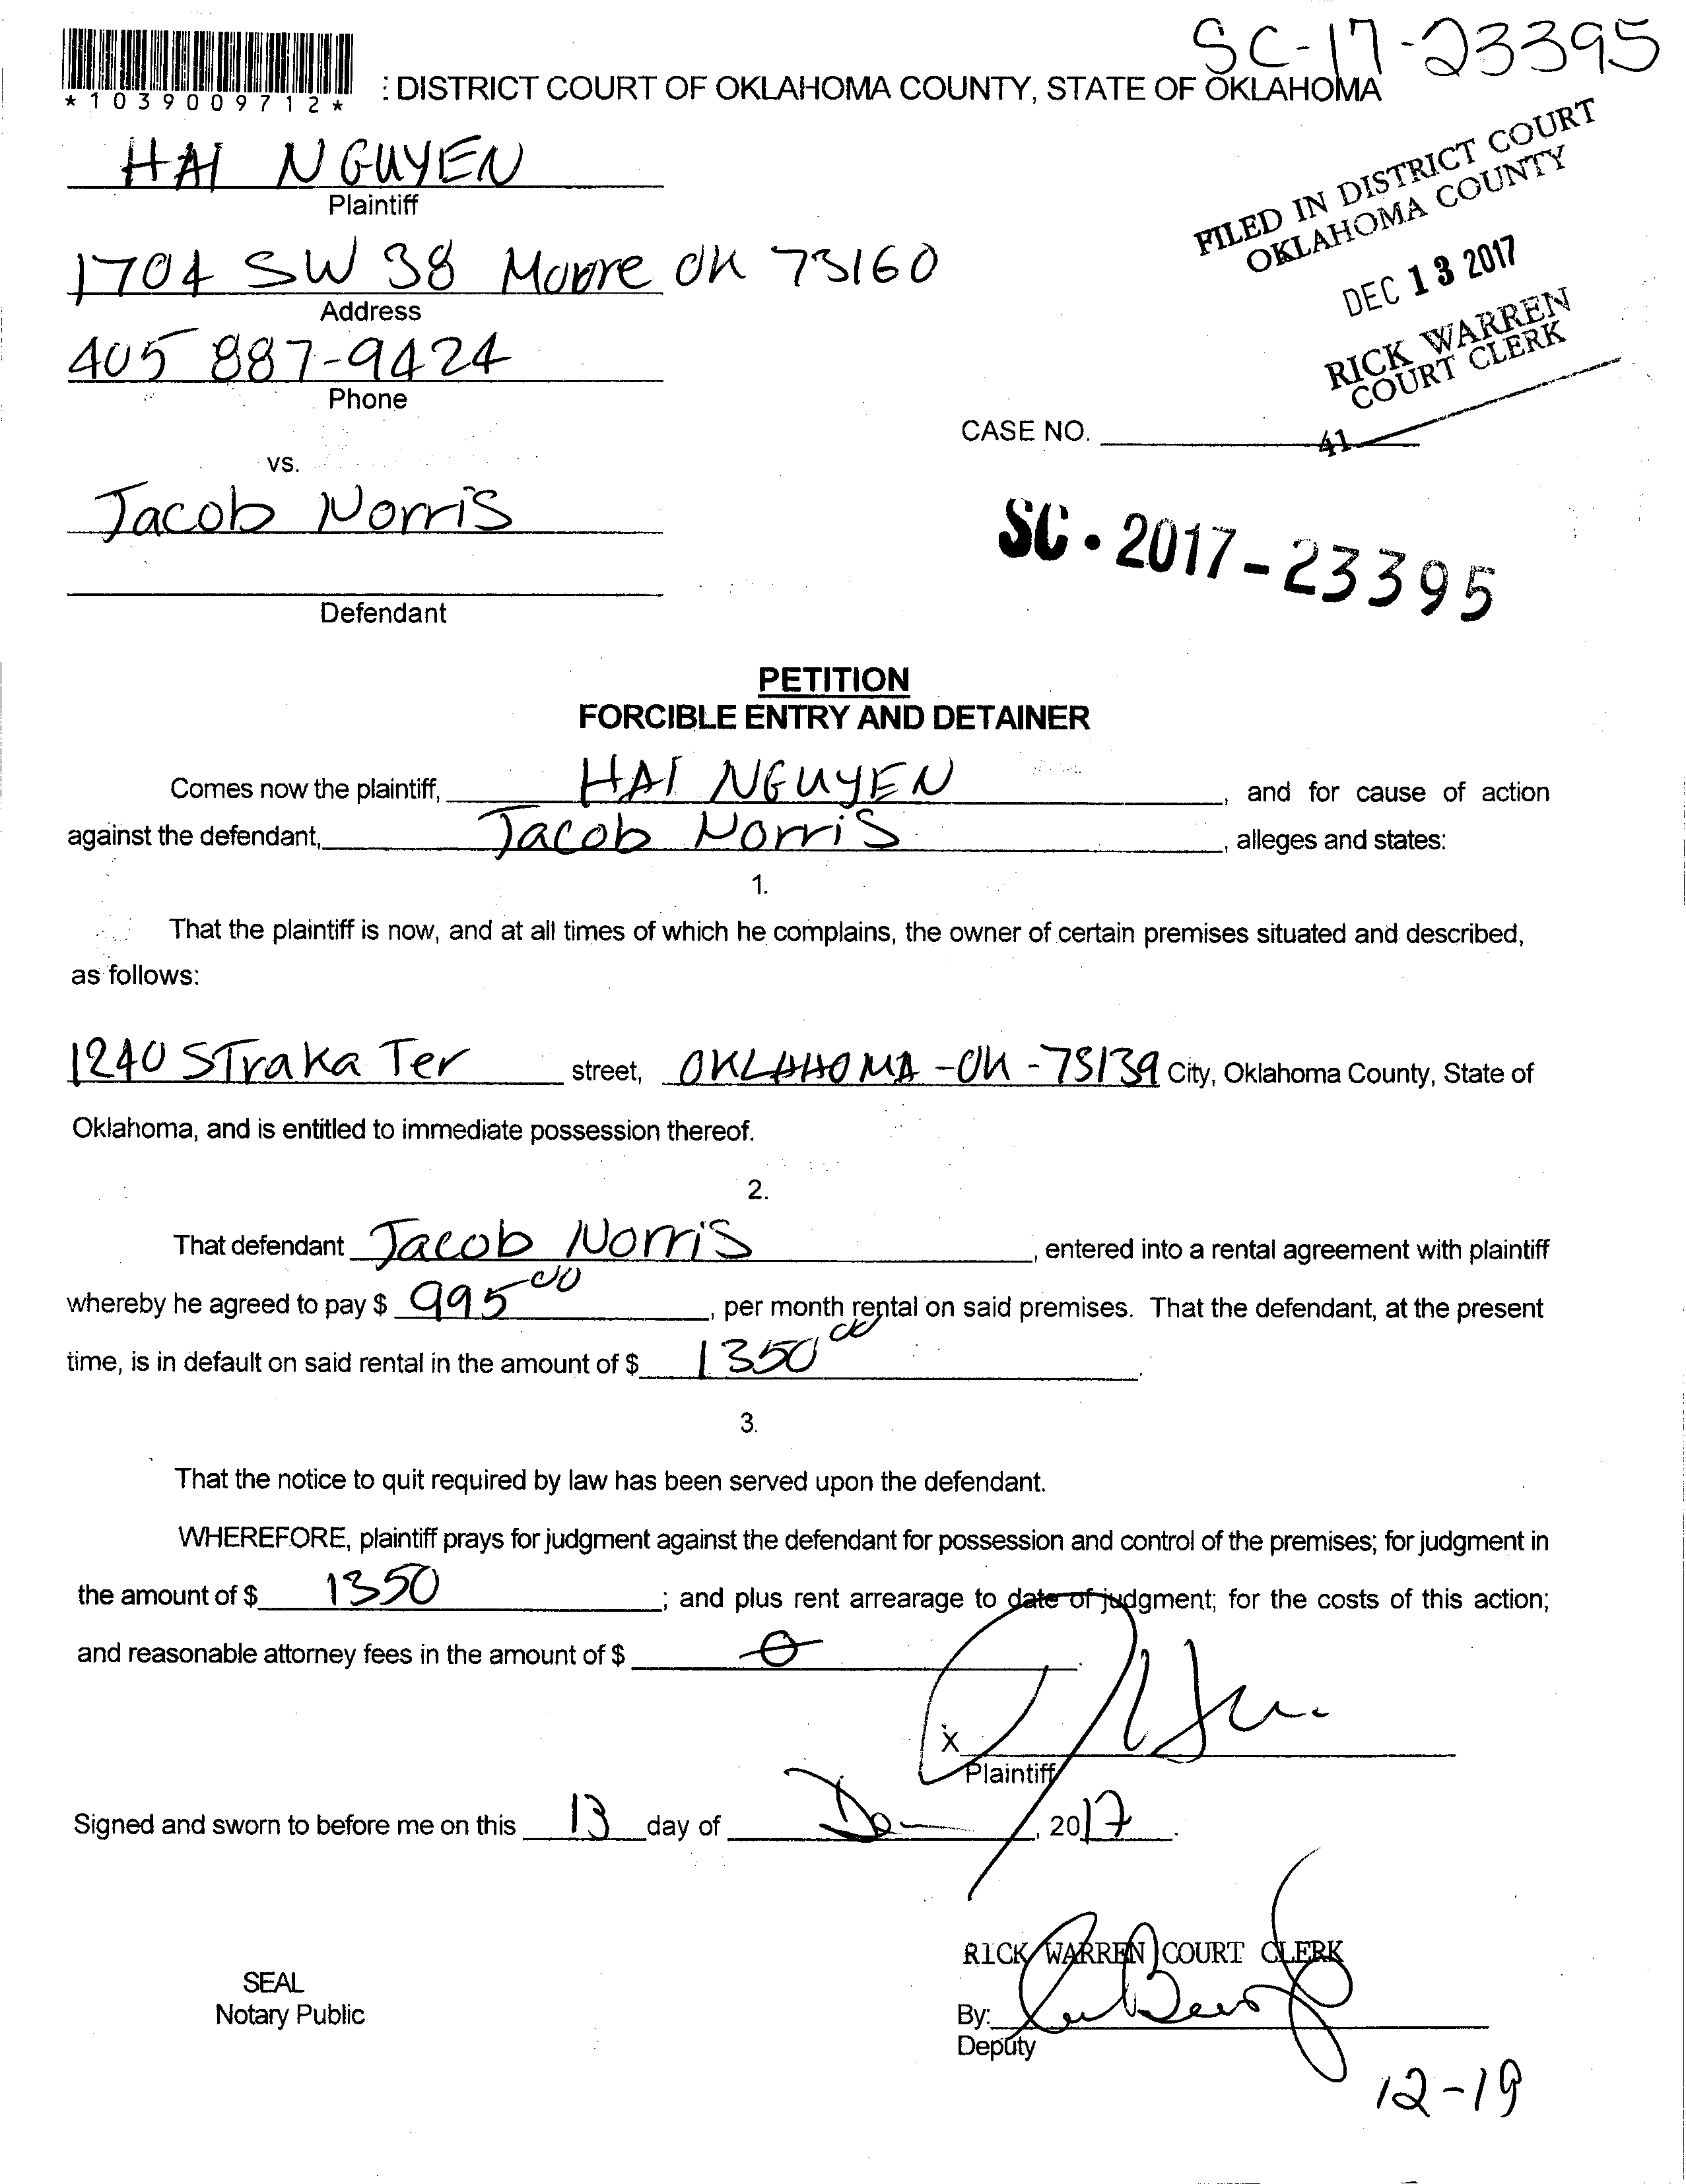 SC-17-23395
*1039009712*
: DISTRICT COURT OF OKLAHOMA COUNTY, STATE OF OKLAHOMA
HAI NGUYEN
Plaintiff
FILED IN DISTRICT COURT
OKLAHOMA COUNTY
DEC 13 2017
RICK WARREN
COURT CLERK
41
1704 SW 38 Moore OK 73160
Address
405 887-9424
Phone
CASE NO.
vs.
Jacob Norris
SC-2017-23395
Defendant
PETITION
FORCIBLE ENTRY AND DETAINER
Comes now the plaintiff, HAI NGUYEN, and for cause of action
against the defendant, Jacob Norris, alleges and states:
1.
That the plaintiff is now, and at all times of which he complains, the owner of certain premises situated and described,
as follows:
1240 STraka Ter street, OKLAHOMA-OK-73139 City, Oklahoma County, State of
Oklahoma, and is entitled to immediate possession thereof.
2.
That defendant Jacob Norris, entered into a rental agreement with plaintiff
whereby he agreed to pay $ 995 00, per month rental on said premises. That the defendant, at the present
time, is in default on said rental in the amount of $ 1350 00.
3.
That the notice to quit required by law has been served upon the defendant.
WHEREFORE, plaintiff prays for judgment against the defendant for possession and control of the premises; for judgment in
the amount of $ 1350; and plus rent arrearage to date of judgment; for the costs of this action;
and reasonable attorney fees in the amount of $ 0.
X
Plaintiff
Signed and sworn to before me on this 13 day of De, 2017.
RICK WARREN COURT CLERK
SEAL
Notary Public
By:
Deputy
12-19